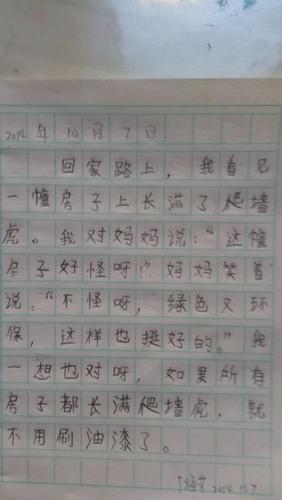 2014年10月7日
回家路上，我看见
一幢房子上长满了爬墙
虎。我对妈妈说：“这幢
房子好怪呀！”妈妈笑着
说：“不怪呀，绿色又环
保，这样也挺好的。”我
一想也对呀，如果所有
房子都长满爬墙虎，就
不用刷油漆了。
2014.10.7